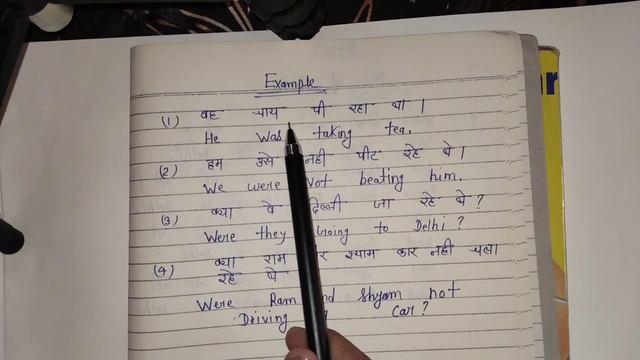 Example
(1) वह चाय पी रहा था ।
He was taking tea.
(2) हम उसे नही पीट रहे थे ।
We were Not beating him.
(3) क्या वे दिल्ली जा रहे थे ?
Were they Going to Delhi ?
(4) क्या राम श्याम कार नही चला
रहे थे
Were Ram Shyam not
Driving car ?